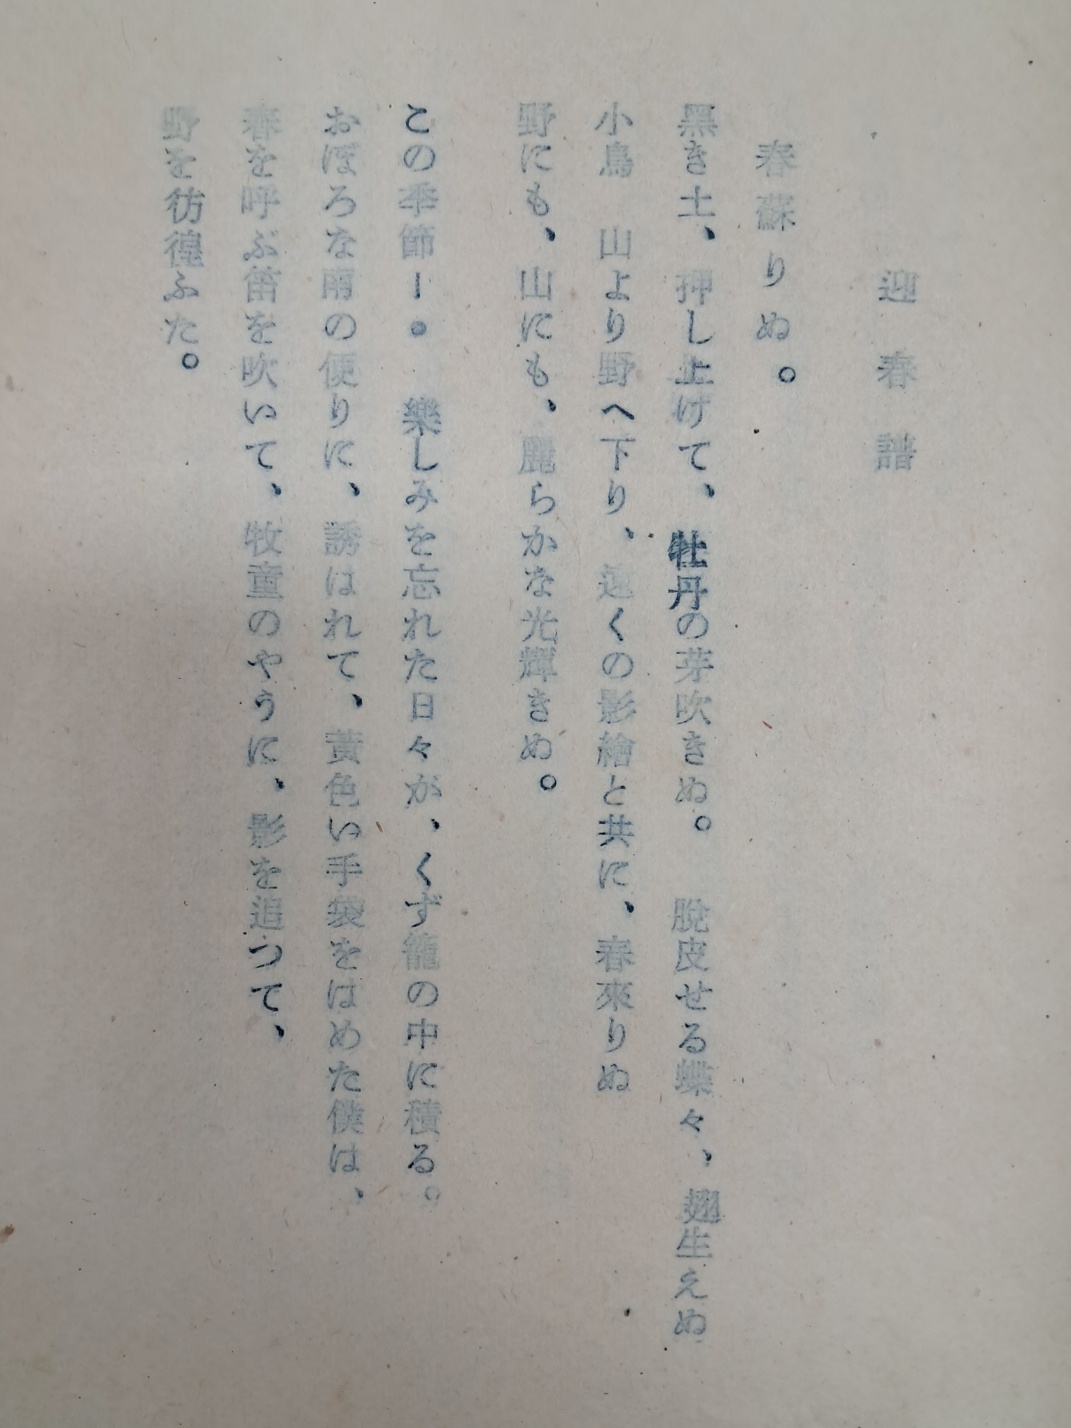 迎春譜
春蘇りぬ。
黑き土、押し上げて、牡丹の芽吹きぬ。　脫皮せる蝶々、翅生えぬ
小鳥　山より野へ下り、遠くの影繪と共に、春來りぬ
野にも、山にも、麗らかな光輝きぬ。
この季節ー。　樂しみを忘れた日々が、くず籠の中に積る。
おぼろな雨の便りに、誘はれて、黃色い手袋をはめた僕は、
春を呼ぶ笛を吹いて、牧童のやうに、影を追つて、
野を彷徨ふた。